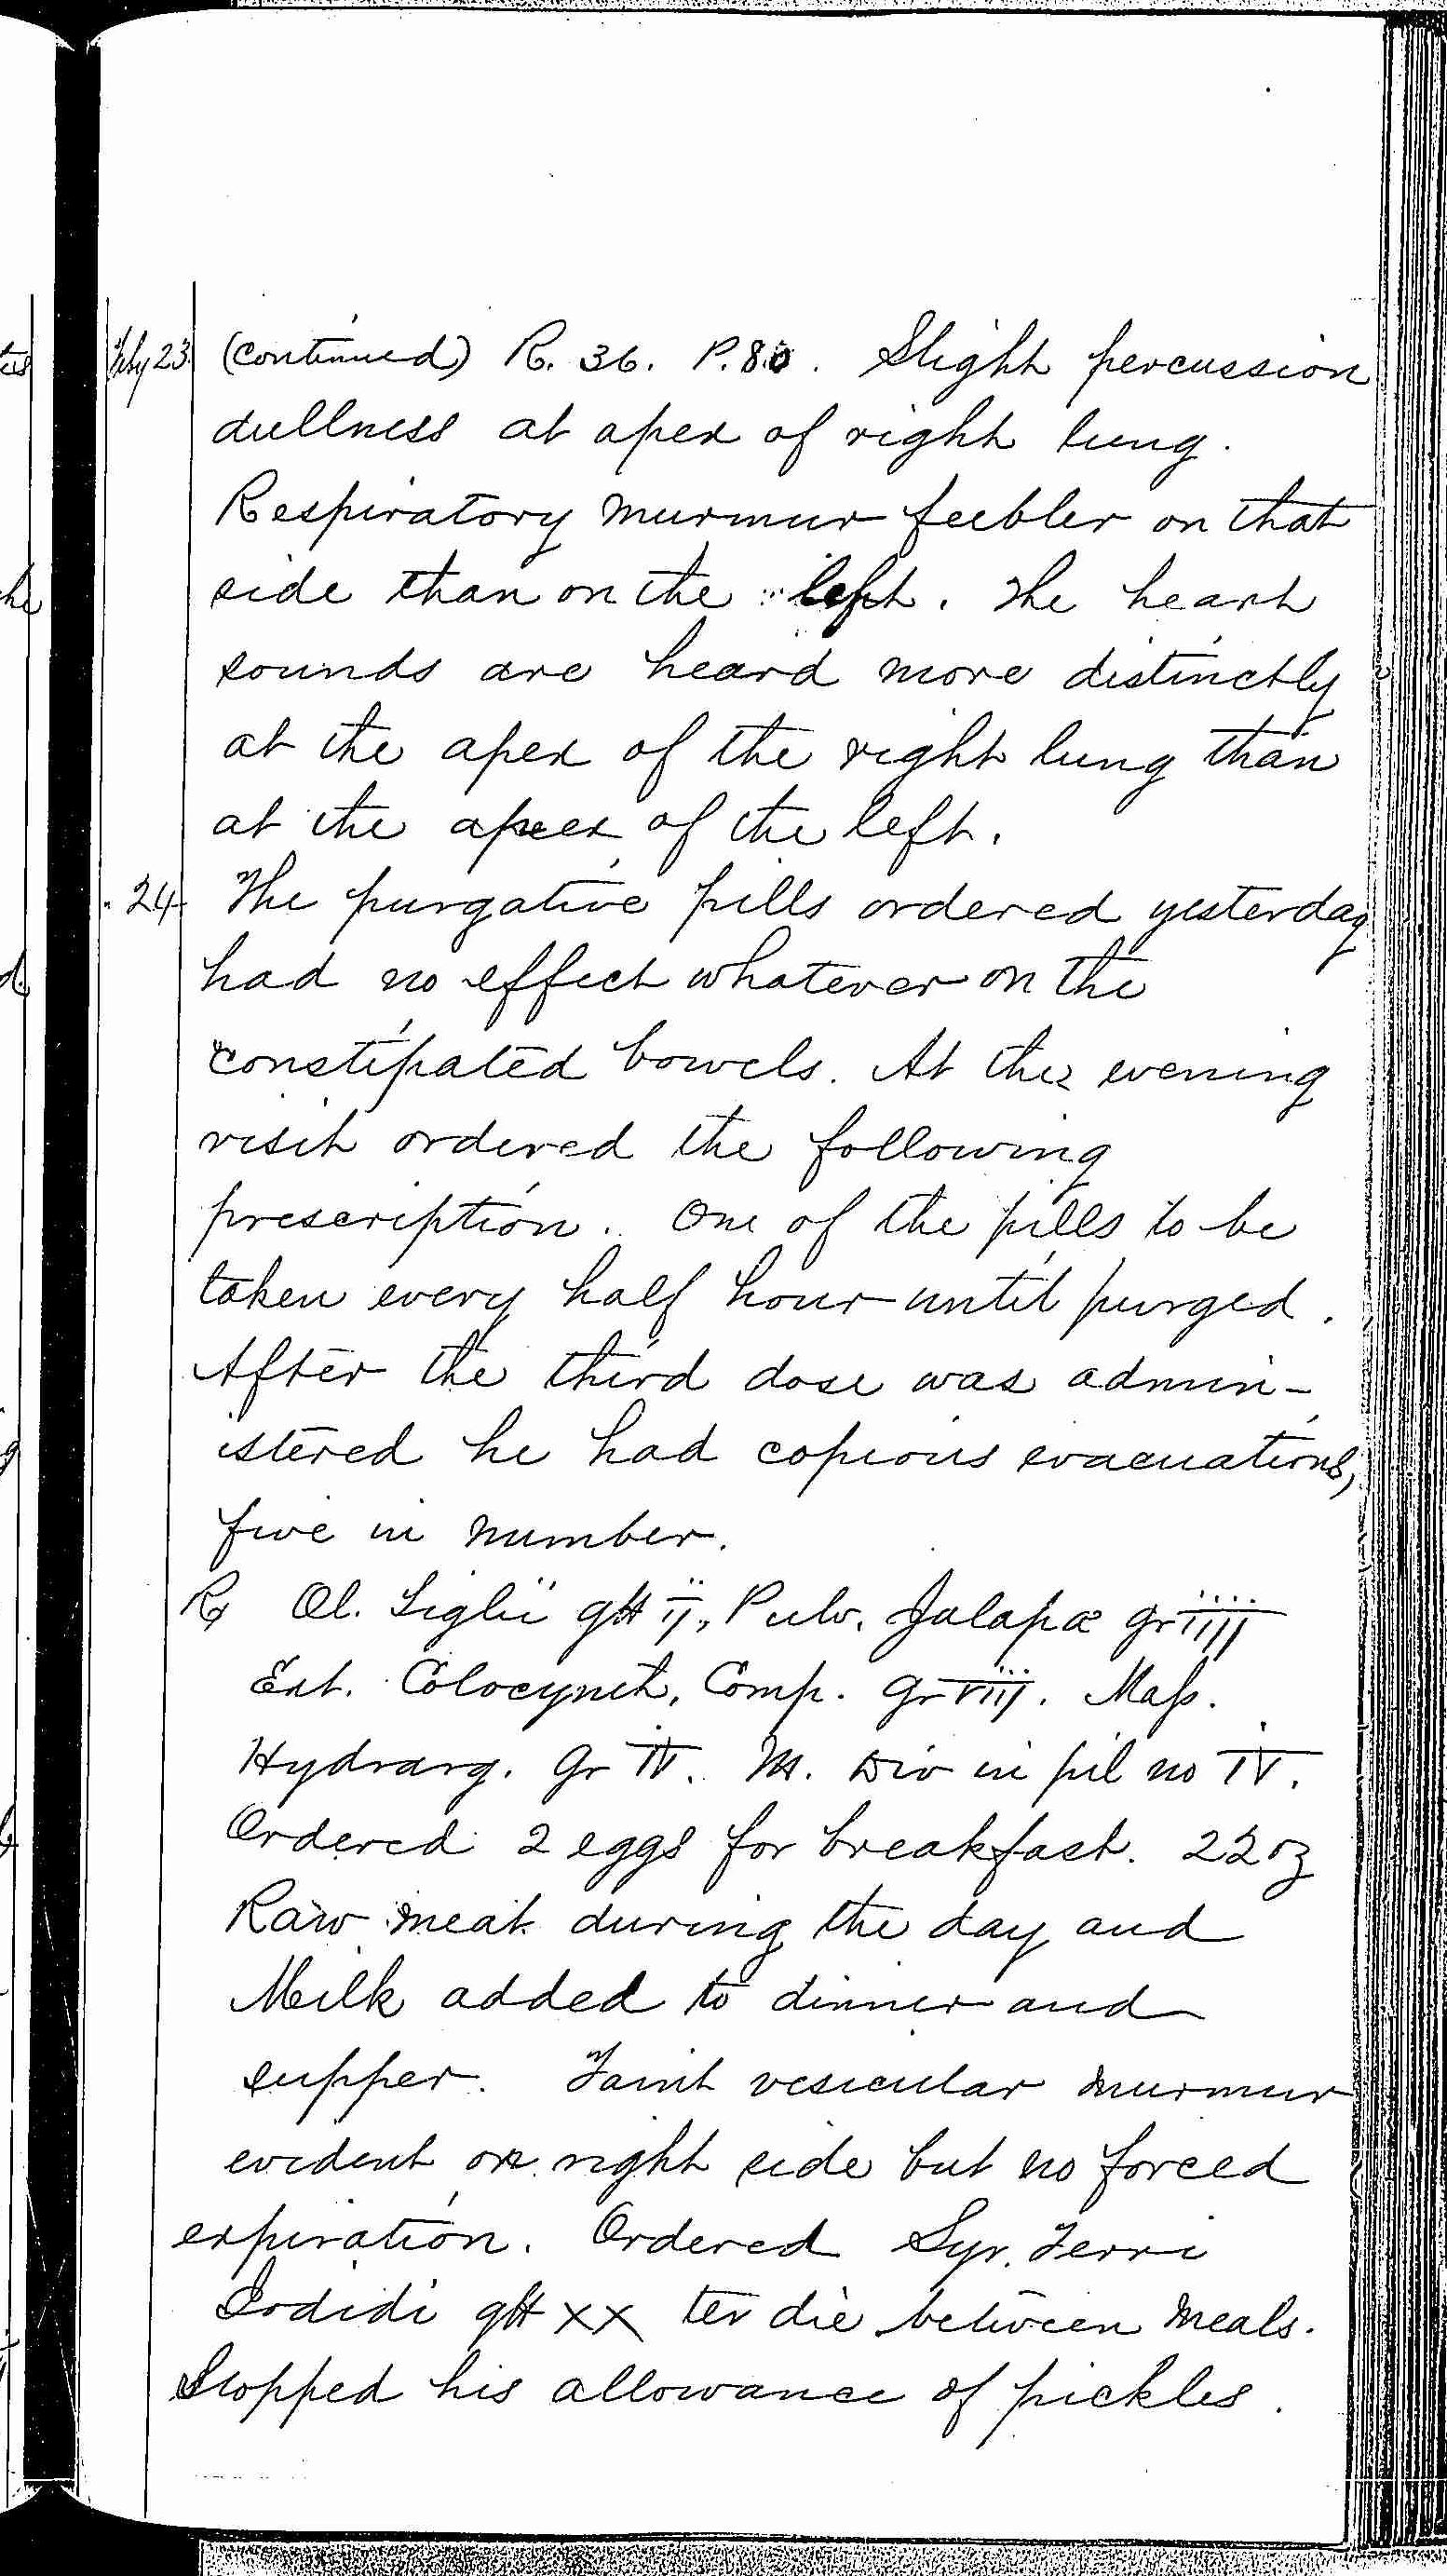 Feby 23. (continued) R. 36. P. 80. Slight percussion
dullness at apex of right lung.
Respiratory murmur feebler on that
side than on the left. The heart
sounds are heard more distinctly
at the apex of the right lung than
at the apex of the left.
" 24 The purgative pills ordered yesterday
had no effect whatever on the
constipated bowels. At the evening
visit ordered the following
prescription. One of the pills to be
taken every half hour until purged.
After the third dose was admin-
istered he had copious evacuations,
five in number.
℞ Ol. Tiglii gtt ij, Pulv. Jalapæ gr iiij
Ext. Colocynth, Comp. gr viij. Mass.
Hydrarg. gr IV. M. Div in pil no IV.
Ordered 2 eggs for breakfast. 22 oz
Raw meat during the day and
Milk added to dinner and
supper. Faint vesicular murmur
evident on right side but no forced
expiration. Ordered Syr. Ferri
Iodidi gtt XX ter die between meals.
Stopped his allowance of pickles.